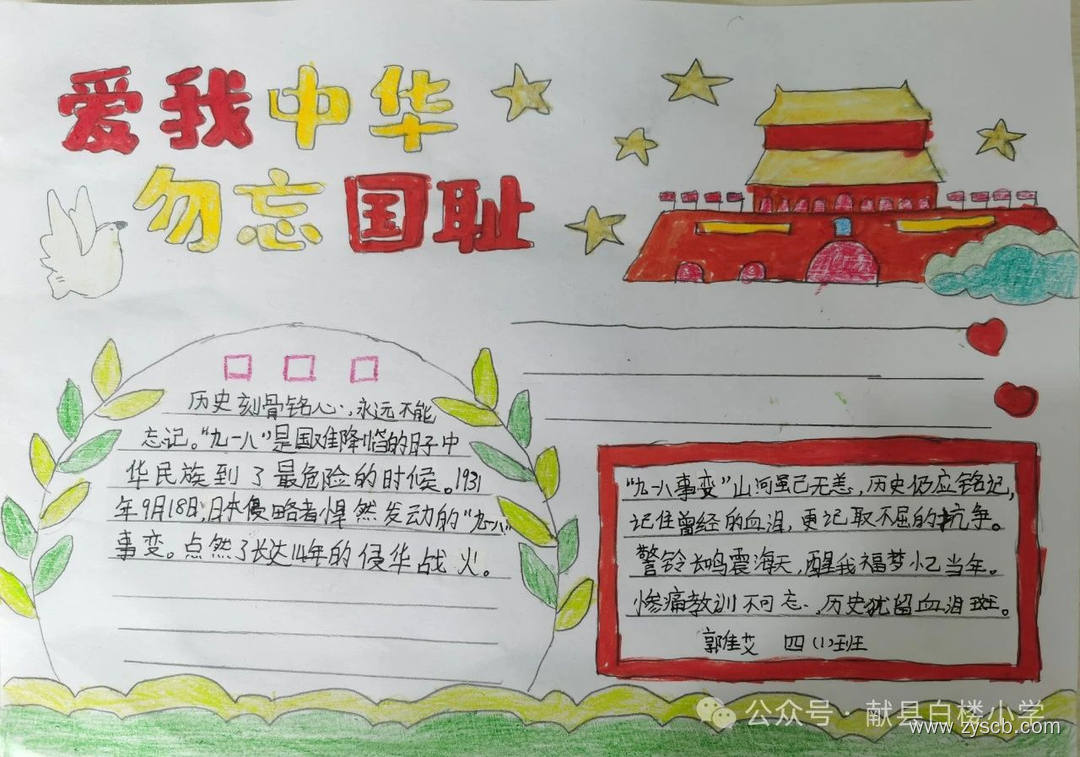 爱我中华
勿忘国耻
历史刻骨铭心,永远不能
忘记。“九一八”是国难降临的日子中
华民族到了最危险的时候。1931
年9月18日,日本侵略者悍然发动的“九一八”
事变。点燃了长达14年的侵华战火。
“九一八事变”山河虽已无恙,历史仍应铭记,
记住曾经的血泪,更记取不屈的抗争。
警铃长鸣震海天,醒我福梦忆当年。
惨痛教训不可忘,历史犹留血泪斑。
郭佳艾 四(1)班
公众号·献县白楼小学
www.zyscb.com